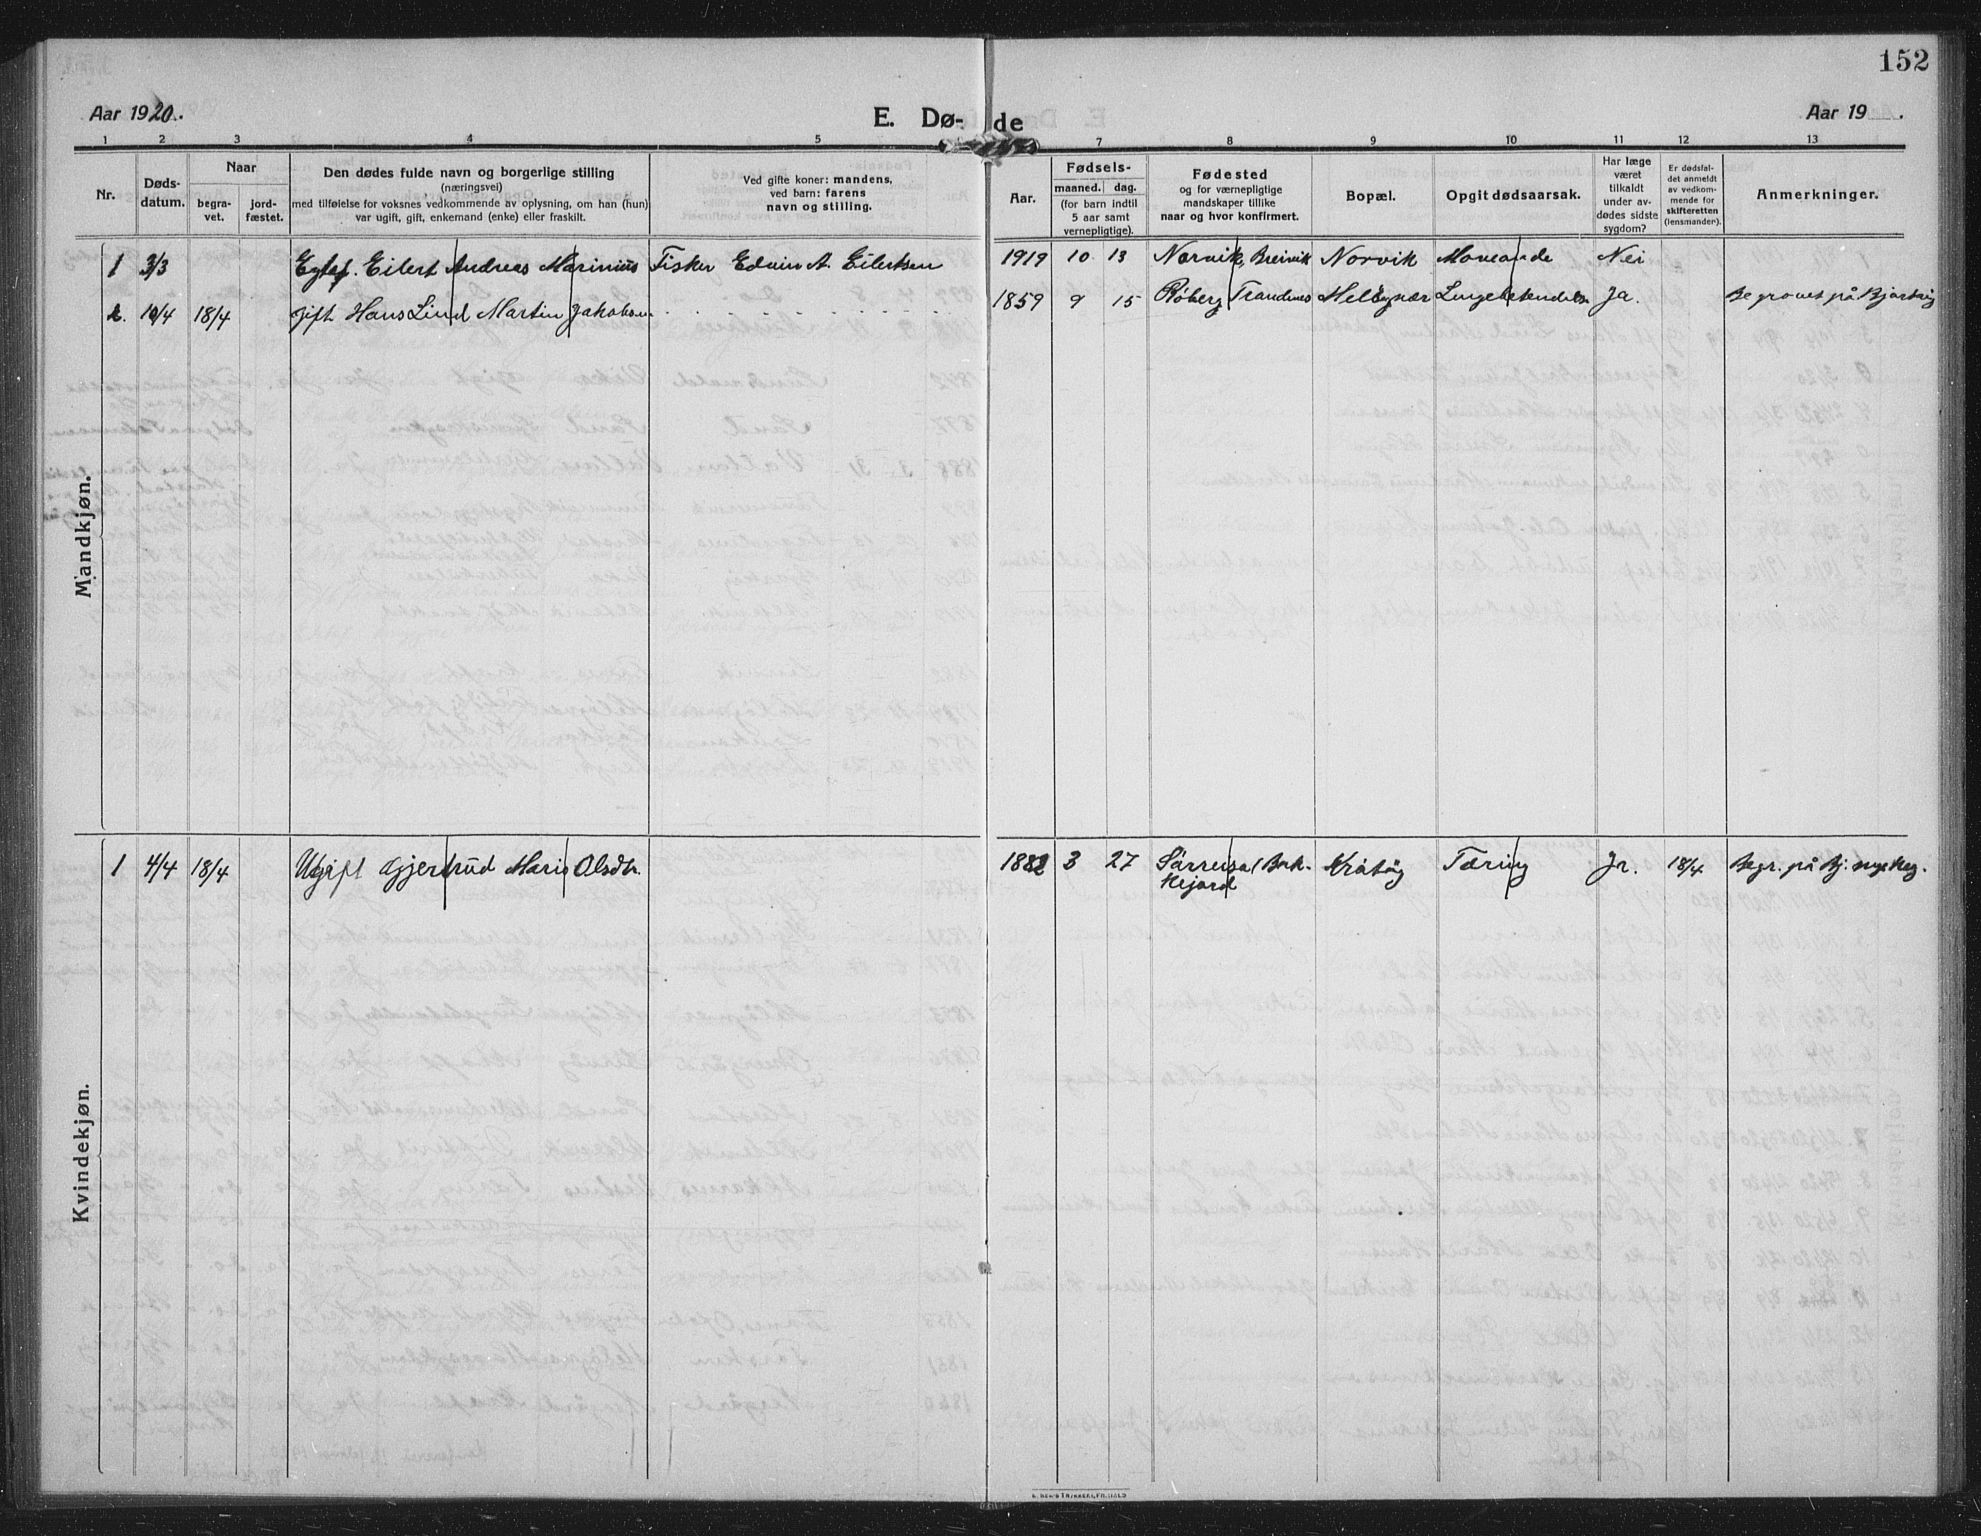 152
Aar 1920.
E. Dø-
de
Aar 19 .
1 2 3 4 5 7 8 9 10 11 12 13
Nr.
Døds-
datum.
Naar
begra-
vet.
jord-
fæstet.
Den dødes fulde navn og borgerlige stilling
(næringsvei)
med tilføielse for voksnes vedkommende av oplysning, om han (hun)
var ugift, gift, enkemand (enke) eller fraskilt.
Ved gifte koner: mandens,
ved barn: farens
navn og stilling.
Aar.
Fødsels-
maaned. dag.
(for barn indtil
5 aar samt
vernepligtige).
Fødested
og for værnepligtige
mandskaper tillike
naar og hvor konfirmert.
Bopæl.
Opgit dødsaarsak.
Har læge
været
tilkaldt
under av-
dødes sidste
sygdom?
Er dødsfal-
det anmeldt
av vedkom-
mende for
skifteretten
(lensmanden).
Anmerkninger.
Mandkjøn.
1 3/3 Eilert Andreas Marinius Fisker Edvin A. Eilertsen 1919 10 13 Norvik, Breivik Norvik Nei
2. 10/4 18/4 gift Hans Lind Martin Jakobsen 1859 9 15 Røberg Trandenes Melögnær Ja. Begravet på
Kvindekjøn.
1 4/4 18/4 Ugift Gjertrud Marie Olsdtr. 1882 3 27 Sørreisa Krøtøy Tæring Ja. 18/4 Begr. på Bj.